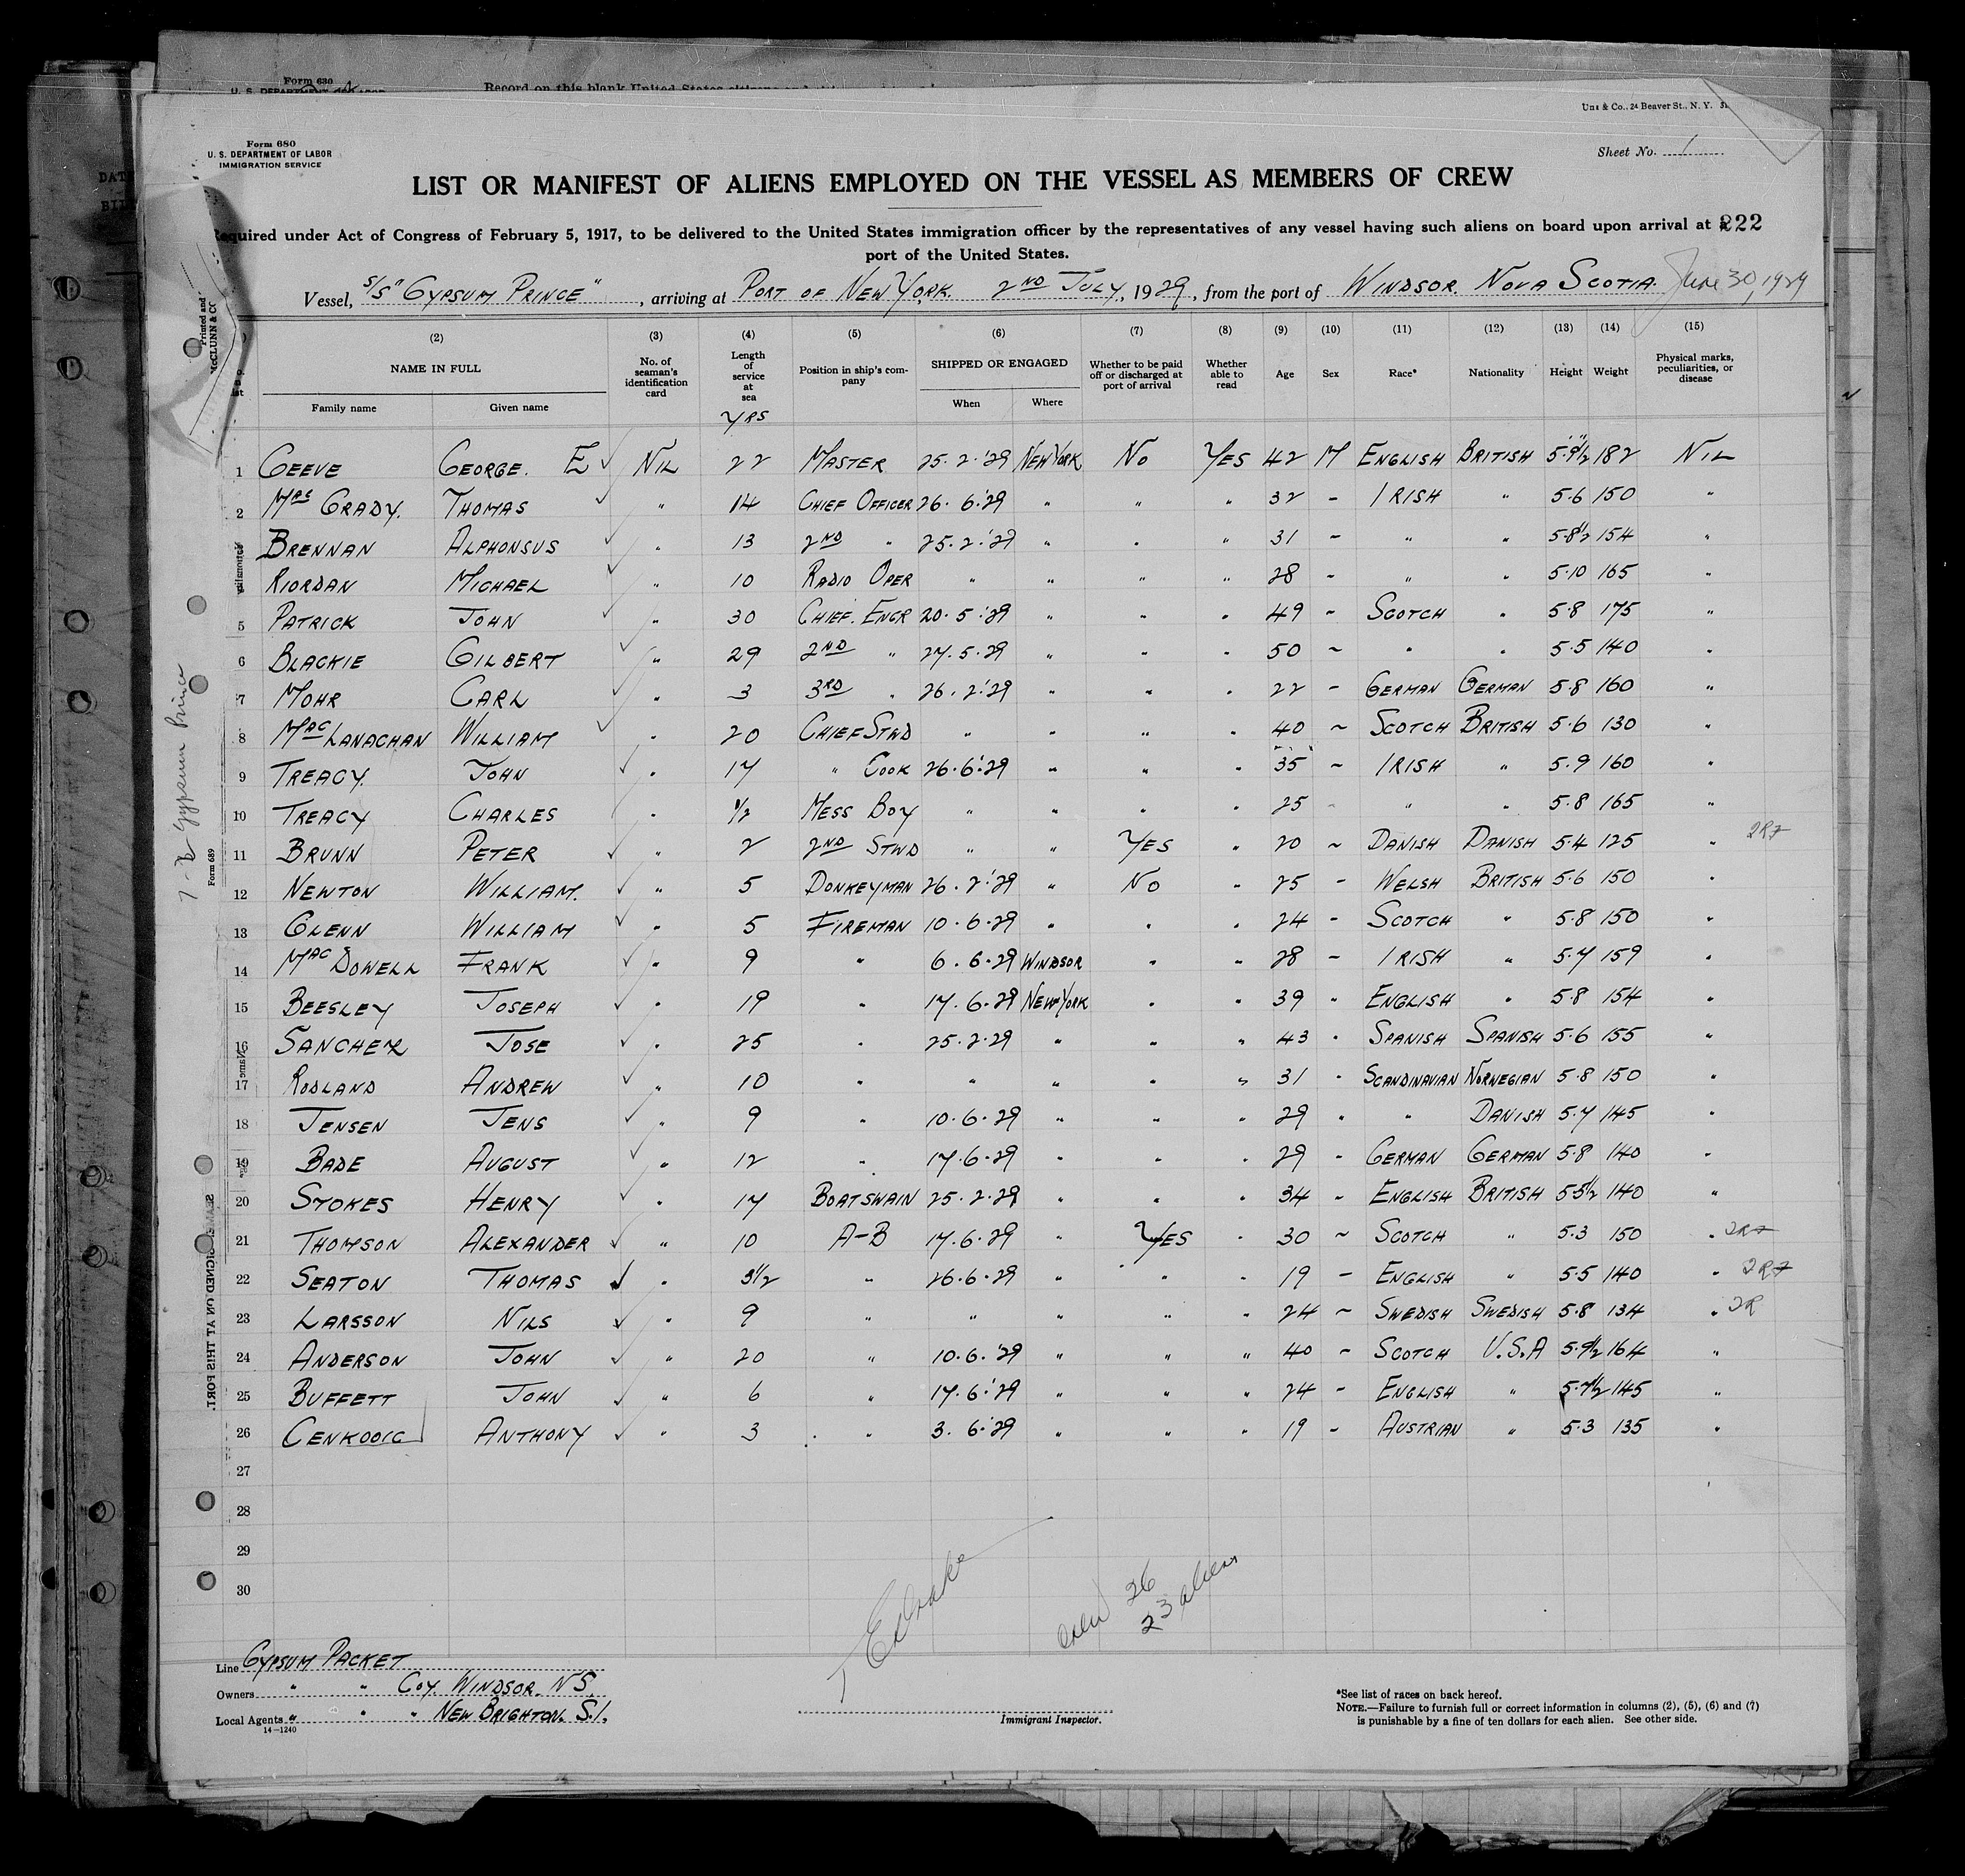 Form 630
U. S. DEPARTMENT OF LABOR
Record on this blank United States citizens
Uns & Co., 24 Beaver St., N. Y.
Form 680
U. S. DEPARTMENT OF LABOR
IMMIGRATION SERVICE
Sheet No. 1
LIST OR MANIFEST OF ALIENS EMPLOYED ON THE VESSEL AS MEMBERS OF CREW
Required under Act of Congress of February 5, 1917, to be delivered to the United States immigration officer by the representatives of any vessel having such aliens on board upon arrival at a 222
port of the United States.
Vessel, S/S "GYPSUM PRINCE", arriving at PORT OF NEW YORK. 2ND JULY, 1929, from the port of WINDSOR. NOVA SCOTIA. June 30, 1929
(2) (3) (4) (5) (6) (7) (8) (9) (10) (11) (12) (13) (14) (15)
NAME IN FULL Family name Given name No. of seaman's identification card Length of service at sea YRS Position in ship's company SHIPPED OR ENGAGED When Where Whether to be paid off or discharged at port of arrival Whether able to read Age Sex Race* Nationality Height Weight Physical marks, peculiarities, or disease
1 GEEVE GEORGE. E ✓ NIL 22 MASTER 25.2.'29 NEW YORK NO YES 42 M ENGLISH BRITISH 5'.9½" 182 NIL
2 GRADY. THOMAS ✓ " 14 CHIEF OFFICER 26.6.'29 " " " 32 - IRISH " 5.6 150 "
3 BRENNAN ALPHONSUS ✓ " 13 2ND " 25.2.'29 " " " 31 - " " 5.8½ 154 "
4 RIORDAN MICHAEL ✓ " 10 RADIO OPER " " " " 28 - " " 5.10 165 "
5 PATRICK JOHN ✓ " 30 CHIEF. ENGR 20.5.'29 " " " 49 - SCOTCH " 5.8 175 "
6 BLACKIE GILBERT ✓ " 29 2ND " 27.5.29 " " " 50 - " " 5.5 140 "
7 MOHR CARL ✓ " 3 3RD " 26.2.'29 " " " 22 - GERMAN GERMAN 5.8 160 "
8 MAC LANACHAN WILLIAM ✓ " 20 CHIEF STWD " " " " 40 - SCOTCH BRITISH 5.6 130 "
9 TREACY. JOHN ✓ " 17 " COOK 26.6.'29 " " " 35 - IRISH " 5.9 160 "
10 TREACY CHARLES ✓ " ½ MESS BOY " " " " 25 - " " 5.8 165 "
11 BRUNN PETER ✓ " 2 2ND STWD " " YES " 20 - DANISH DANISH 5.4 125 "
12 NEWTON WILLIAM. ✓ " 5 DONKEYMAN 26.2.'29 " NO " 25 - WELSH BRITISH 5.6 150 "
13 GLENN WILLIAM ✓ " 5 FIREMAN 10.6.29 " " " 24 - SCOTCH " 5.8 150 "
14 MAC DOWELL FRANK ✓ " 9 " 6.6.29 WINDSOR " " 28 - IRISH " 5.7 159 "
15 BEESLEY JOSEPH ✓ " 19 " 17.6.29 NEW YORK " " 39 " ENGLISH " 5.8 154 "
16 SANCHEZ JOSE ✓ " 25 " 25.2.29 " " " 43 " SPANISH SPANISH 5.6 155 "
17 RODLAND ANDREW ✓ " 10 " " " " " 31 " SCANDINAVIAN NORWEGIAN 5.8 150 "
18 JENSEN JENS ✓ " 9 " 10.6.29 " " " 29 " " DANISH 5.7 145 "
19 BADE AUGUST ✓ " 12 " 17.6.29 " " " 29 - GERMAN GERMAN 5.8 140 "
20 STOKES HENRY ✓ " 17 BOATSWAIN 25.2.29 " " " 34 - ENGLISH BRITISH 5.5½ 140 "
21 THOMSON ALEXANDER ✓ " 10 A-B 17.6.29 " YES " 30 - SCOTCH " 5.3 150 "
22 SEATON THOMAS ✓ " 3½ " 26.6.29 " " " 19 - ENGLISH " 5.5 140 "
23 LARSSON NILS ✓ " 9 " " " " " 24 - SWEDISH SWEDISH 5.8 134 " 2R
24 ANDERSON JOHN ✓ " 20 " 10.6.'29 " " " 40 - SCOTCH U.S.A 5.9½ 164 "
25 BUFFETT JOHN ✓ " 6 " 17.6.'29 " " " 24 - ENGLISH " 5.7½ 145 "
26 CENKODIC ANTHONY ✓ " 3 " 3.6.'29 " " " 19 - AUSTRIAN " 5.3 135 "
27
28
29
30
crew 26
23 aliens
Line GYPSUM PACKET
Owners " " COY. WINDSOR. N S.
Local Agents " " " NEW BRIGHTON. S.I.
14-1240
Immigrant Inspector.
*See list of races on back hereof.
NOTE.—Failure to furnish full or correct information in columns (2), (5), (6) and (7)
is punishable by a fine of ten dollars for each alien. See other side.
Gypsum Prince
Form 689
Printed and
McCLUNN & CO
SIGNED ON AT THIS PORT.